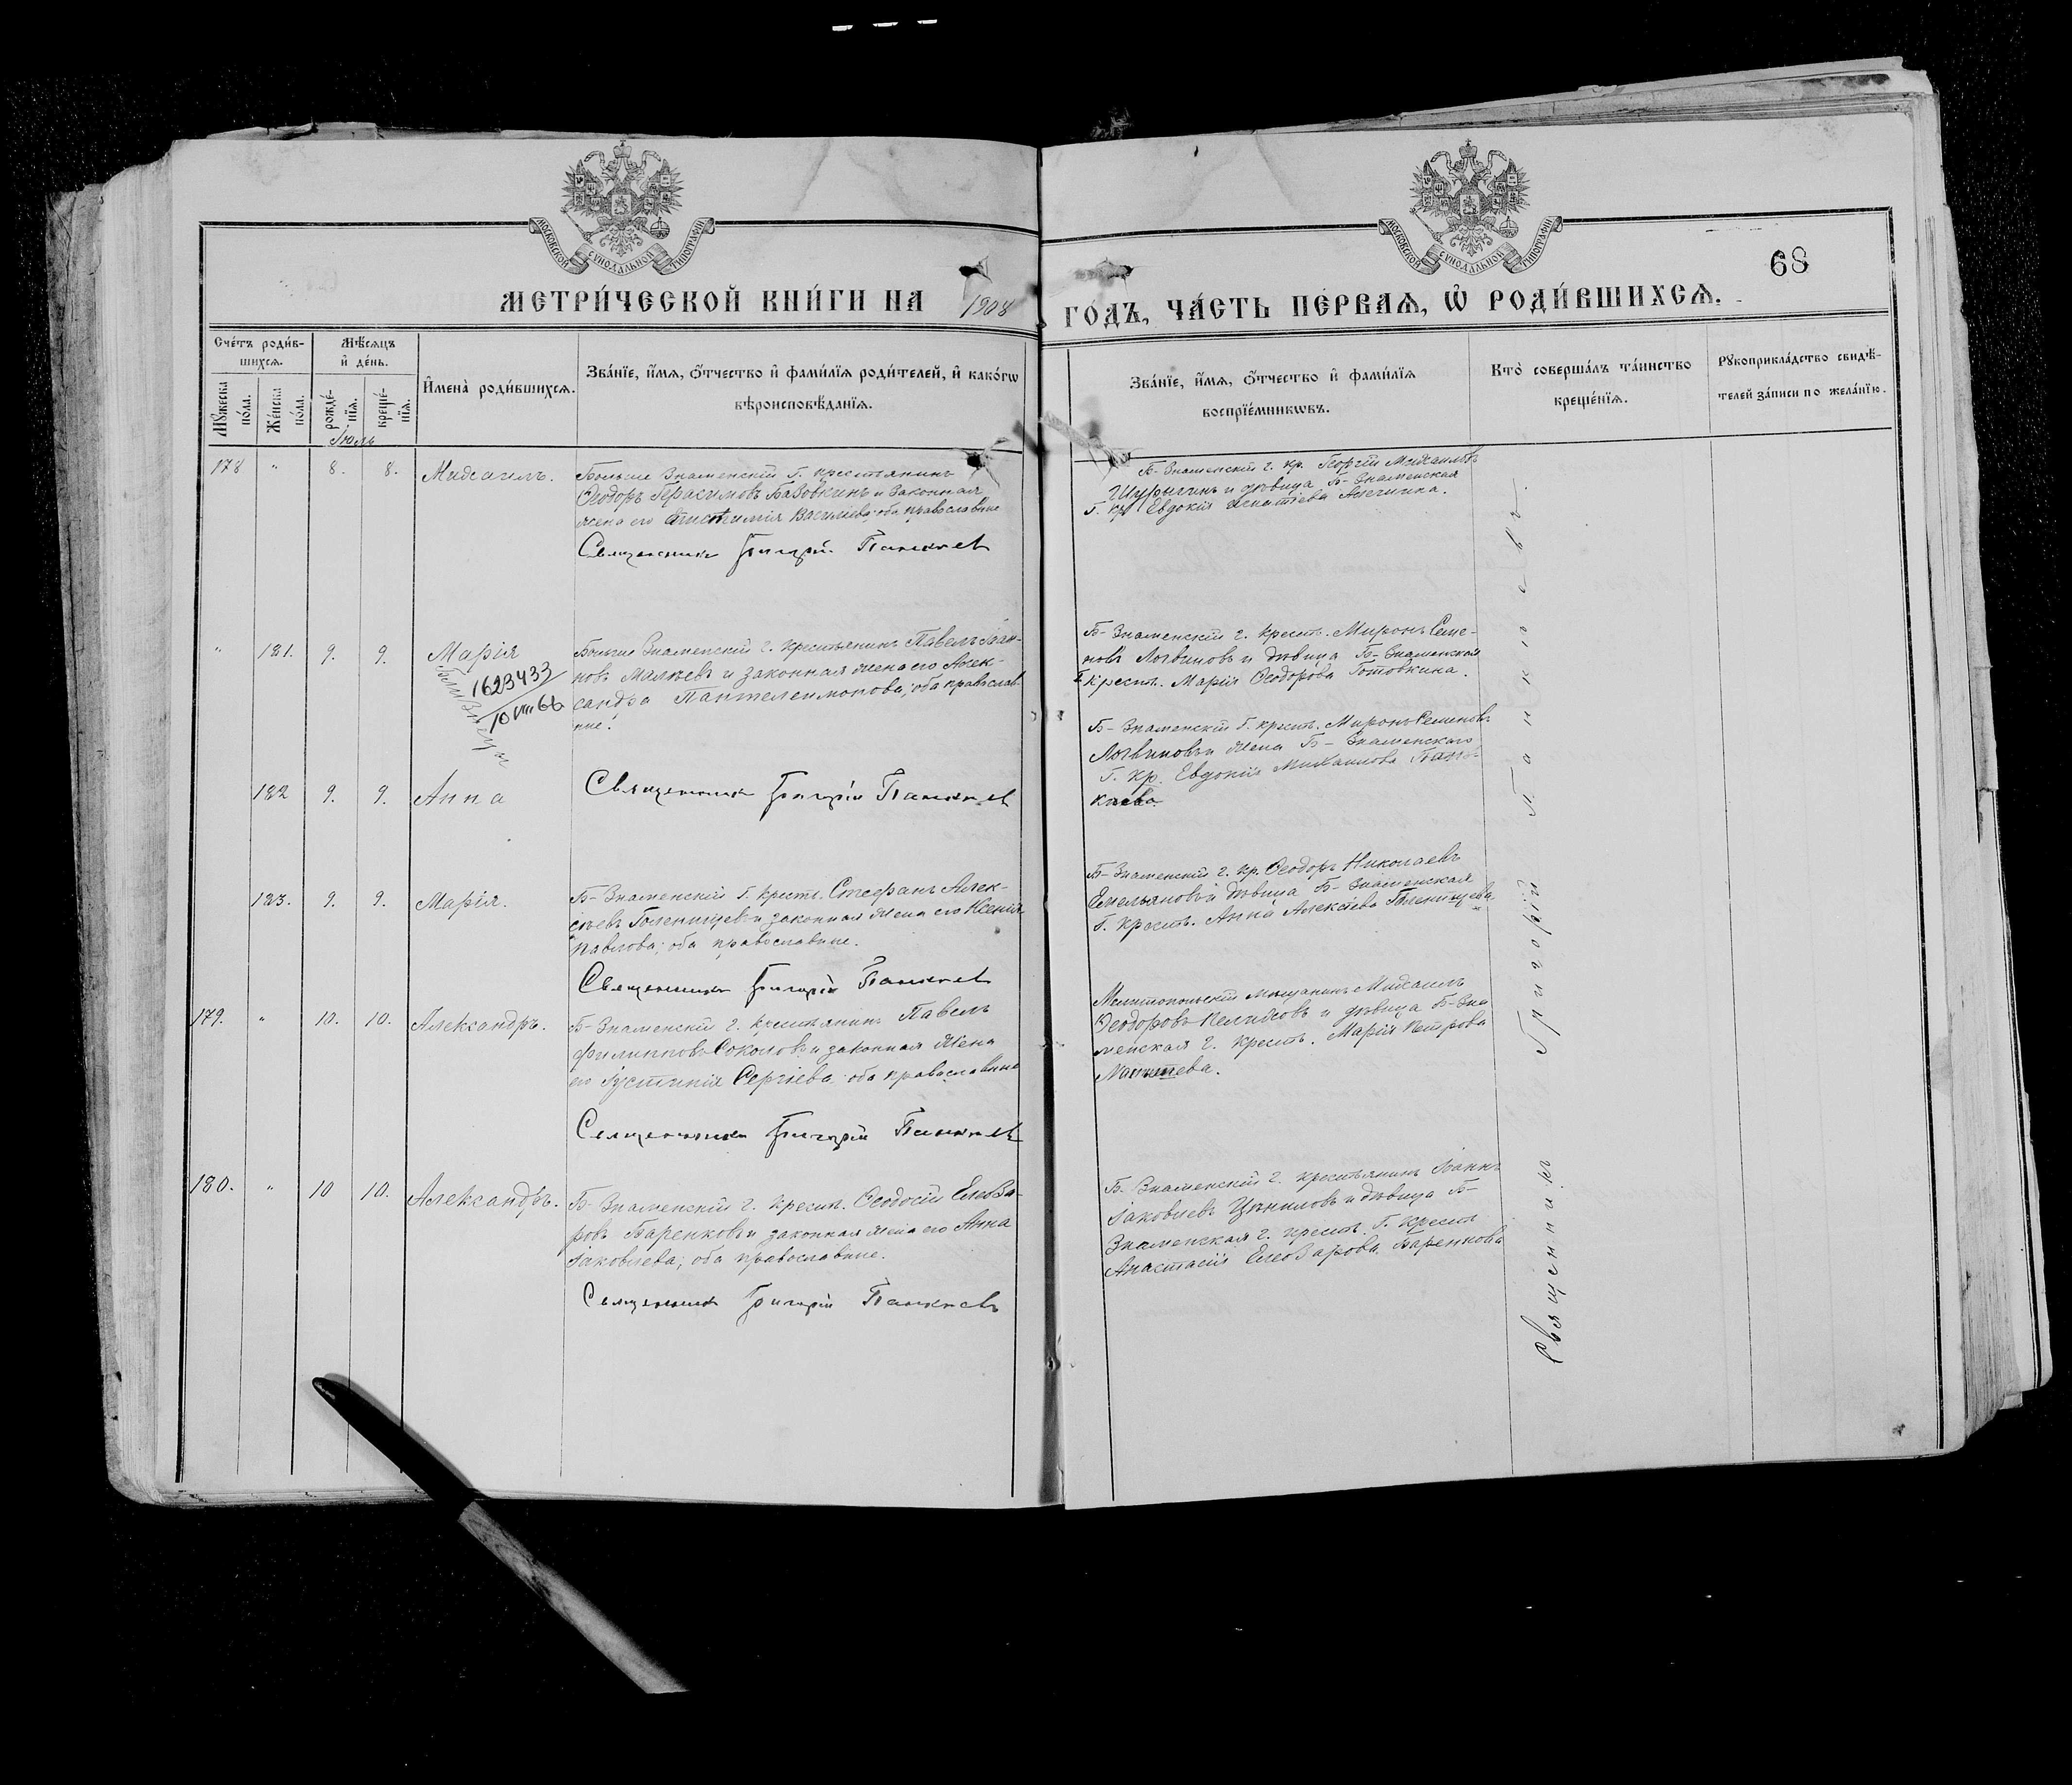 МОСКОВСКОЙ СѴНОДАЛЬНОЙ ТИПОГРАФІИ
МОСКОВСКОЙ СѴНОДАЛЬНОЙ ТИПОГРАФІИ
68
МЕТРИ́ЧЕСКОЙ КНИ́ГИ НА 1908 ГОДЪ, ЧА́СТЬ ПЕ́РВАѦ, Ѿ РОДИ́ВШИХСѦ.
Сче́тъ роди́в-
шихсѧ.
Мꙋжеска по́ла.
Же́нска по́ла.
Мѣ́сѧцъ
и҆ де́нь.
рожде́-
нїѧ.
креще́-
нїѧ.
И҆мена̀ роди́вшихсѧ.
Зва́нїе, и҆́мѧ, ѻ҆́тчество и҆ фами́лїѧ роди́телей, и҆ како́гѡ
вѣроисповѣ́данїѧ.
Зва́нїе, и҆́мѧ, ѻ҆́тчество и҆ фами́лїѧ
воспрїе́мникѡвъ.
Кто̀ соверша́лъ та́инство
креще́нїѧ.
Рꙋкоприкла́дство свидѣ́-
телей за́писи по жела́нїю.
Іюль
178 " 8. 8. Михаилъ.
Больше Знаменскій г. крестьянинъ
Ѳеодоръ Герасимовъ Базовкинъ и законная
жена его Епистимія Васильева; оба православные
Священникъ Григорій Панкѣевъ
Б-Знаменскій г. кр. Георгій Михаиловъ
Шурыгинъ и дѣвица Б-Знаменская
г. кр. Евдокія Игнатіева Алечкина.
" 181. 9. 9. Марія
близнецы
1623433
10 VIII 66
Больше Знаменскій г. крестьянинъ Павелъ Іоан-
новъ Малѣевъ и законная жена его Алек-
сандра Пантелеимонова; оба православ-
ные.
Б-Знаменскій г. крест. Миронъ Семе-
новъ Логвиновъ и дѣвица Б-Знаменская
г. крест. Марія Ѳеодорова Готовкина.
182 9. 9. Анна
Священникъ Григорій Панкѣевъ
Б-Знаменскій г. крест. Миронъ Семеновъ
Логвиновъ и жена Б-Знаменскаго
г. кр. Евдокія Михаилова Пан-
кѣева
183. 9. 9. Марія.
Б-Знаменскій г. крест. Стефанъ Алек-
сѣевъ Голенищевъ и законная жена его Ксенія
Павлова; оба православные.
Священникъ Григорій Панкѣевъ
Б-Знаменскій г. кр. Ѳеодоръ Николаевъ
Емельяновъ и дѣвица Б-Знаменская
г. крест. Анна Алексѣева Голенищева
179. " 10. 10. Александръ.
Б-Знаменскій г. крестьянинъ Павелъ
Филипповъ Соколовъ и законная жена
его Іустинія Сергіева; оба православные
Священникъ Григорій Панкѣевъ
Мелитопольскій мѣщанинъ Михаилъ
Ѳеодоровъ и дѣвица Б-Зна
менская г. крест. Марія Петрова
180. " 10 10. Александръ.
Б-Знаменскій г. крест. Ѳеодосій Елеаза-
ровъ Баренковъ и законная жена его Анна
Іаковлева; оба православные.
Священникъ Григорій Панкѣевъ
Б-Знаменскій г. крестьянинъ Іоаннъ
Іаковлевъ и дѣвица Б-
Знаменская г. крест. г. крест
Анастасія Елеазарова Баренкова
Священникъ Григорій Панкѣевъ.